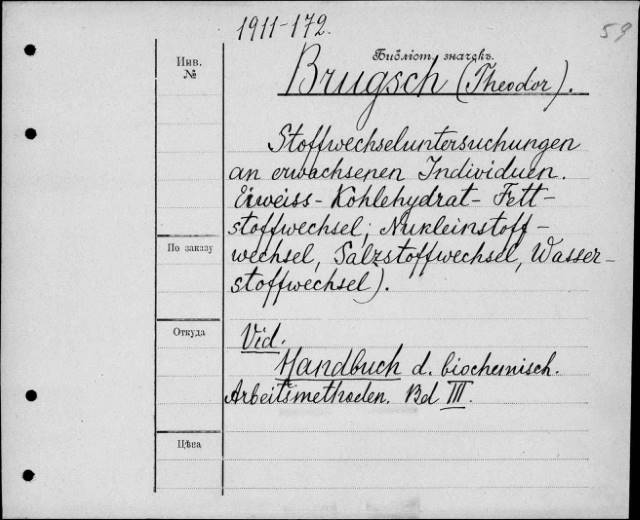 1911-172.
59
Инв.
№
Библіот. значекъ.
Brugsch (Theodor).
Stoffwechseluntersuchungen
an erwachsenen Individuen.
Eiweiss- Kohlehydrat- Fett-
stoffwechsel; Nukleinstoff-
По заказу
wechsel, Salzstoffwechsel, Wasser-
stoffwechsel).
Откуда
Vid.
Handbuch d. biochemisch.
Arbeitsmethoden. Bd III.
Цѣна